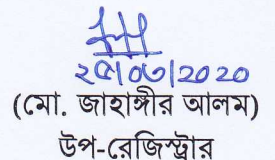 ২৫/০৩/2020
(মো. জাহাঙ্গীর আলম)
উপ-রেজিস্ট্রার